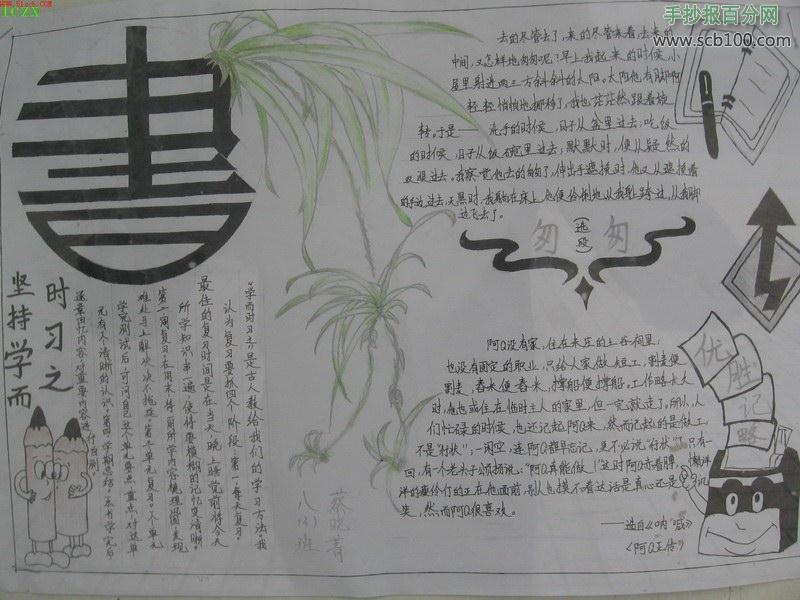 www.51ech.com
1CZX
手抄报百分网
www.scb100.com
書
去的尽管去了，来的尽管来着，去来的
中间，又怎样地匆匆呢？早上我起来的时候，小
屋里射进两三方斜斜的太阳。太阳他有脚啊，
轻轻悄悄地挪移了，我也茫茫然跟着旋
转。于是——洗手的时候，日子从盆里过去；吃饭
的时候，日子从饭碗里过去；默默时，便从凝然的
双眼过去。我察觉他去的匆匆了，伸出手遮挽时，他又从遮挽着
的手边过去，天黑时，我躺在床上，他便伶俐地从我身上跨过，从我脚
边飞去了。
匆（选段）匆
坚持学而
时习之
"学而时习之"是古人教给我们的学习方法。我
认为复习要抓四个阶段：第一，每天复习。
最佳的复习时间是在当天晚上睡觉前将今天
所学知识串一遍，使得要模糊的记忆变清晰。
第二，周复习。在周末将一周所学内容梳理，发现
难处马上解决，决不拖延。第三，单元复习。一个单元
学完测试后，可问自己这个单元要点、重点，对这单
元有个清晰的认识。第四，学期总结。本书学完后
逐章回忆内容，对重要内容进行
蔡晓菁
八(3)班
优
胜
记
略
阿Q没有家，住在未庄的土谷祠里；
也没有固定的职业，只给人家做短工，割麦便
割麦，舂米便舂米，撑船便撑船。工作略长久
时，他也或住在临时主人的家里，但一完就走了。所以，人
们忙碌的时候，也还记起阿Q来，然而记起的是做工，
不是"行状"；一闲空，连阿Q都早忘记，更不必说"行状"了。只有一
回，有个老头子颂扬说："阿Q真能做！"这时阿Q赤着膊，懒洋
洋的瘦伶仃的正在他面前，别人也摸不着这话是真心还是讥
笑，然而阿Q很喜欢。
——选自《呐喊》
《阿Q正传》